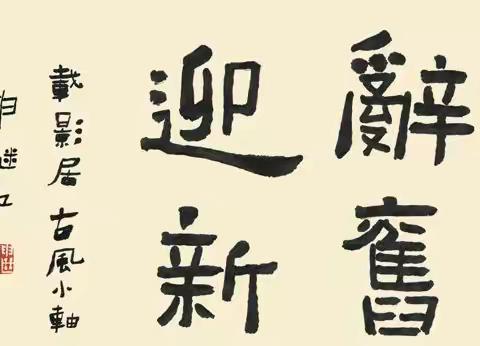 辭舊
迎新
載影居古風小軸